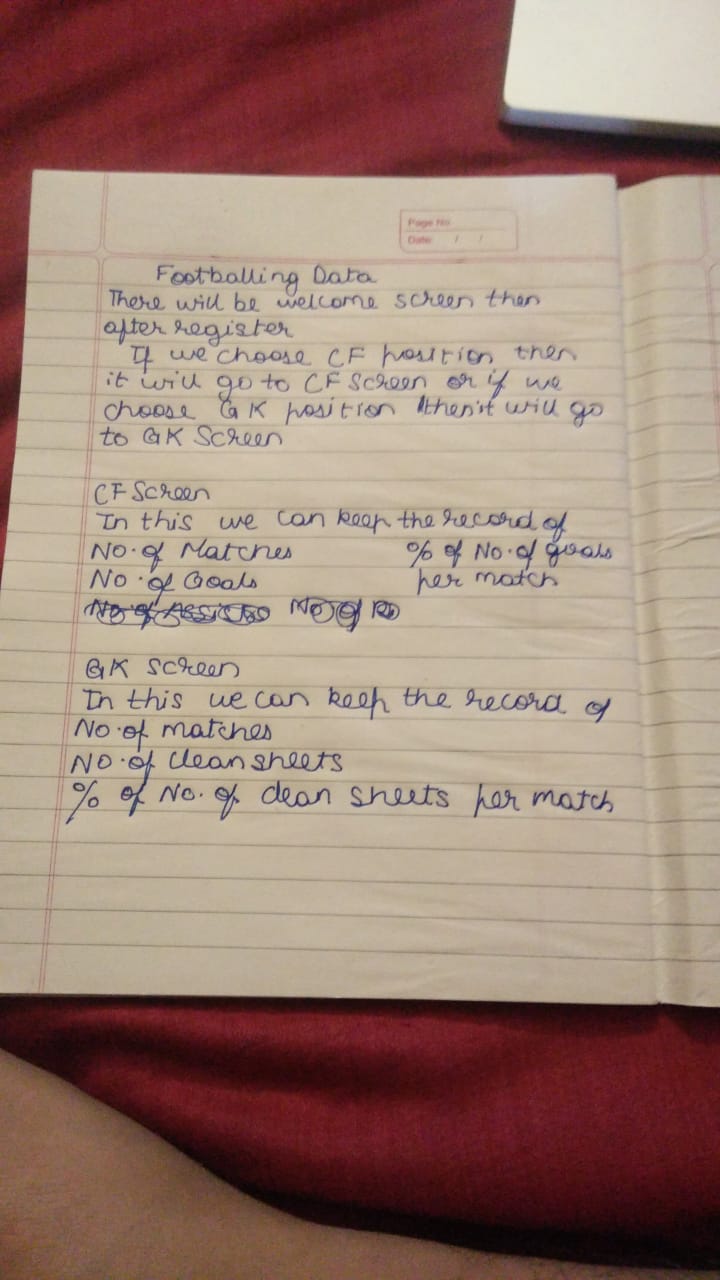 Page No.
Date: / /
Footballing Data
There will be welcome screen then
after register
If we choose CF position then
it will go to CF Screen or if we
choose GK position then it will go
to GK Screen
CF Screen
In this we can keep the record of
No. of Matches % of No. of goals
No. of Goals per match
No of Assists No of
GK screen
In this we can keep the record of
No. of matches
No. of clean sheets
% of No. of clean sheets per match